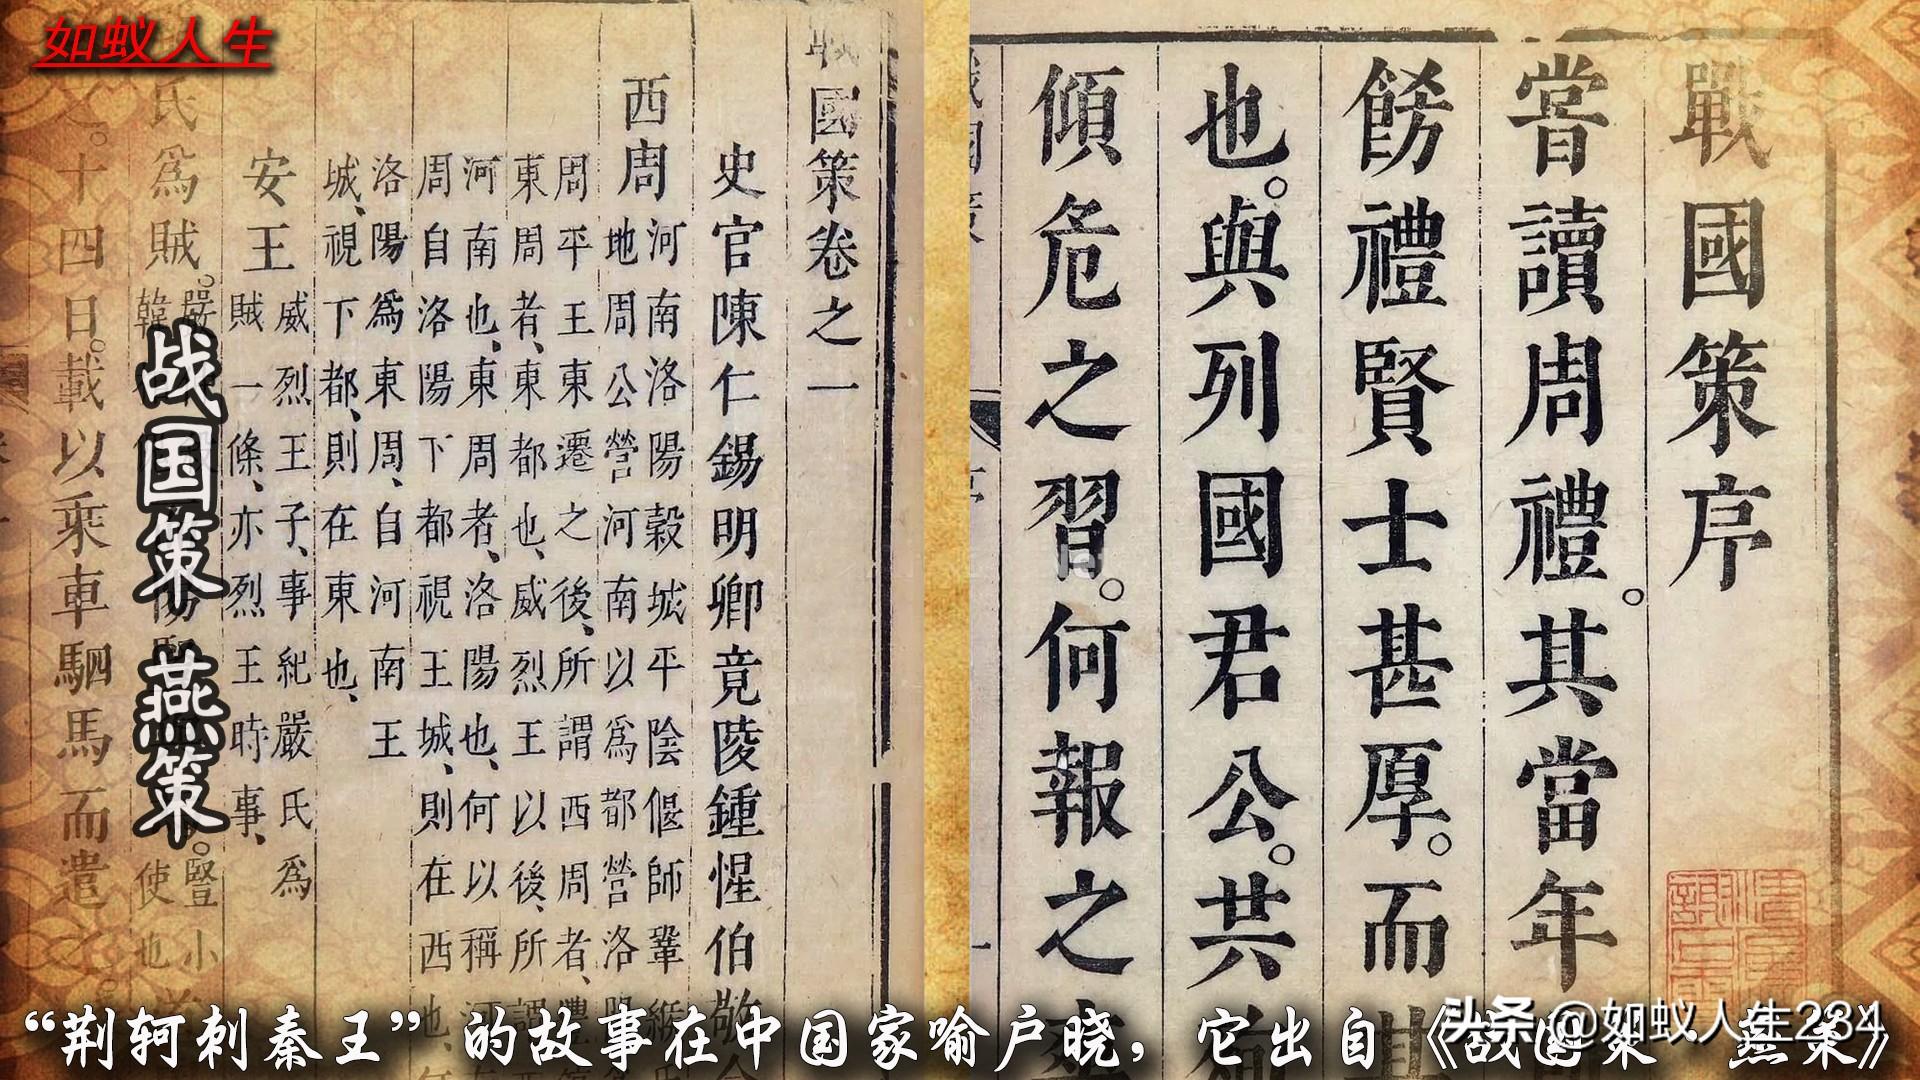 如蚁人生
戰國策序
嘗讀周禮。其當年
餝禮賢士甚厚。而其
也。與列國君公。共
傾危之習。何報之
戰國策卷之一
史官陳仁錫明卿竟陵鍾惺伯敬
西周
河南洛陽穀城平陰偃師鞏緱氏
地周公營河南以爲都營洛陽
周平王東遷之後、所謂西周者、豐
東周者、東都也、威烈王以後、所謂
河南也、東周者、洛陽也、何以稱河
周自洛陽下都視王城、則在西也、
洛陽爲東周、自河南王
城、視下都、則在東也、
安王
威烈王子、事紀嚴氏爲
賊一條、亦烈王時事、
氏爲賊。
豎小
使也
十四日。載以乘車駟馬而遣之。
战国策 燕策
“荆轲刺秦王”的故事在中国家喻户晓，它出自《战国策·燕策》
头条 @如蚁人生234